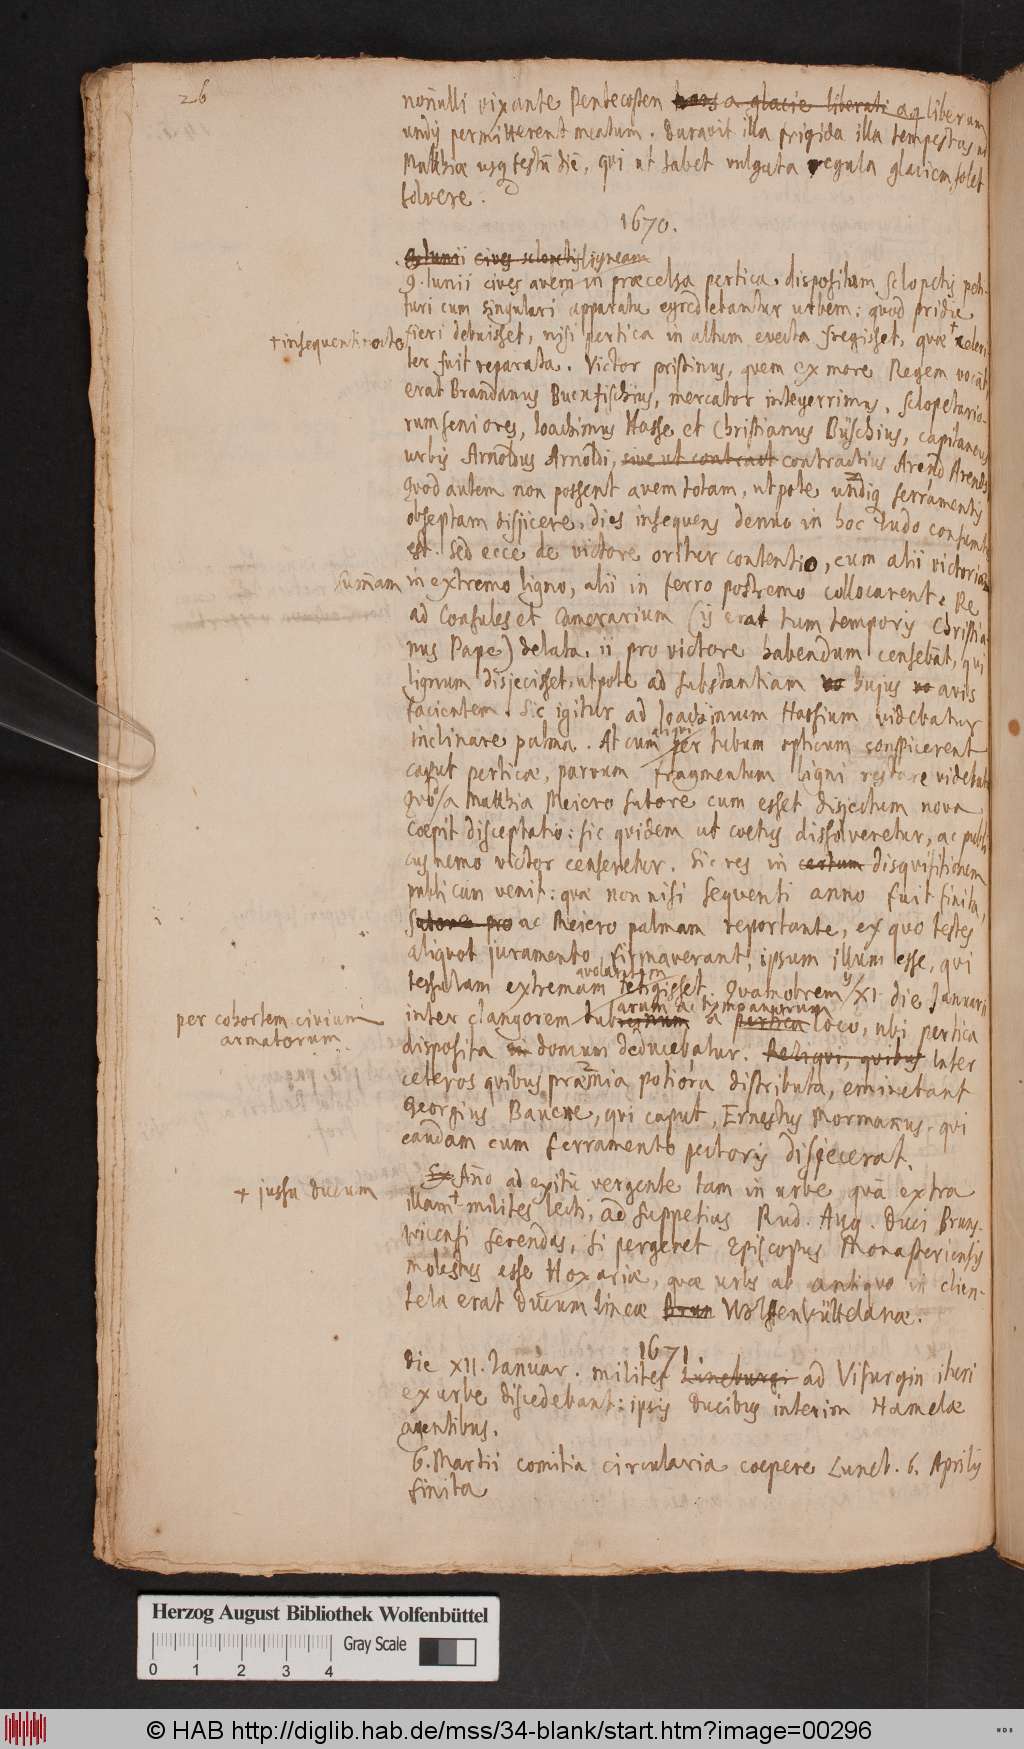 26
nonnulli vix ante Pentecosten hors a glacie liberati aq liberum
undiq permitterent meatum. Duravit illa frigida illa tempestas
Matthiæ usq festū diē, qui ut habet vulgata regula glaciem solet
solvere.
1670.
9 Iunii cives sclopetis ligneam
9. Iunii cives avem in præcelsa pertica dispositam sclopetis peti-
turi cum singulari apparatu egrediebantur urbem: quod pridie
fieri debuisset, nisi pertica in altum evecta fregisset, quæ + celeri
+ insequenti nocte
ter fuit reparata. Victor pristinus, quem ex more Regem vocāt
erat Brandanus Buckfischius, mercator integerrimus, sclopetario-
rum seniores, Ioachimus Hasse et Christianus Büschius, capitaneus
urbis Arnoldus Arnoldi, sive ut contract contractius Arend Arends
Quod autem non possent avem totam, utpote undiq ferramentis
obseptam disjicere, dies insequens denuo in hoc ludo consumta
est. Sed ecce de victore oritur contentio, cum alii victoriæ
summam
in extremo ligno, alii in ferro postremo collocarent. Re
ad Consules et Camerarium (is erat tum temporis Christia-
nus Pape) delata, ii pro victore habendum censebāt, qui
lignum disjecisset, utpote ad substantiam hujus avis
facientem. Sic igitur ad Ioachimum Hassium videbatur
inclinare palma. At cum aliqui per tubum opticum conspicerent
caput perticæ, parvum fragmentum ligni restare videbat
Quo a Matthia Meiero sutore cum esset disjectum nova
cœpit disceptatio: sic quidem ut coetus dissolveretur, ac publi-
cus nemo victor censeretur. Sic res in certum disquisitionem
publicam venit: quæ non nisi sequenti anno fuit finita,
sutore pro ac Meiero palmam reportante, ex quo testes
aliquot juramento firmaverant, ipsum illum esse, qui
avolantem
tessulam extremam tetigisset. Quamobrem XI die Januarii
arum ac tympanorum
inter clangorem tubicinum a pertica loco, ubi pertica
per cohortem civium
armatorum
disposita in domum dēducebatur. Reliqui, quibus Inter
ceteros quibus præmia potiora distributa, eminebant
Georgius Banckre, qui caput, Ernestus Mormannus, qui
caudam cum ferramento pectoris disjecerat.
Ex Año ad exitū vergente tam in urbe quā extra
+ jussu ducum
illam + milites lecti, ad suppetias Rud. Aug. Duci Bruns-
vicensi ferendas, si pergeret Episcopus Monasteriensis
molestus esse Hoxariæ, quæ urbs ab antiquo in clien-
tela erat ducum lineæ Brun Wolffenbüttelanæ.
1671.
die XII. Ianuar. milites Luneburgi ad Visurgin ituri
ex urbe discedebant: ipsis ducibus interim Hamelæ
agentibus.
6. Martii comitia circularia coepere Luneb. 6. Aprilis
finita
Herzog August Bibliothek Wolfenbüttel
Gray Scale
0 1 2 3 4
© HAB http://diglib.hab.de/mss/34-blank/start.htm?image=00296